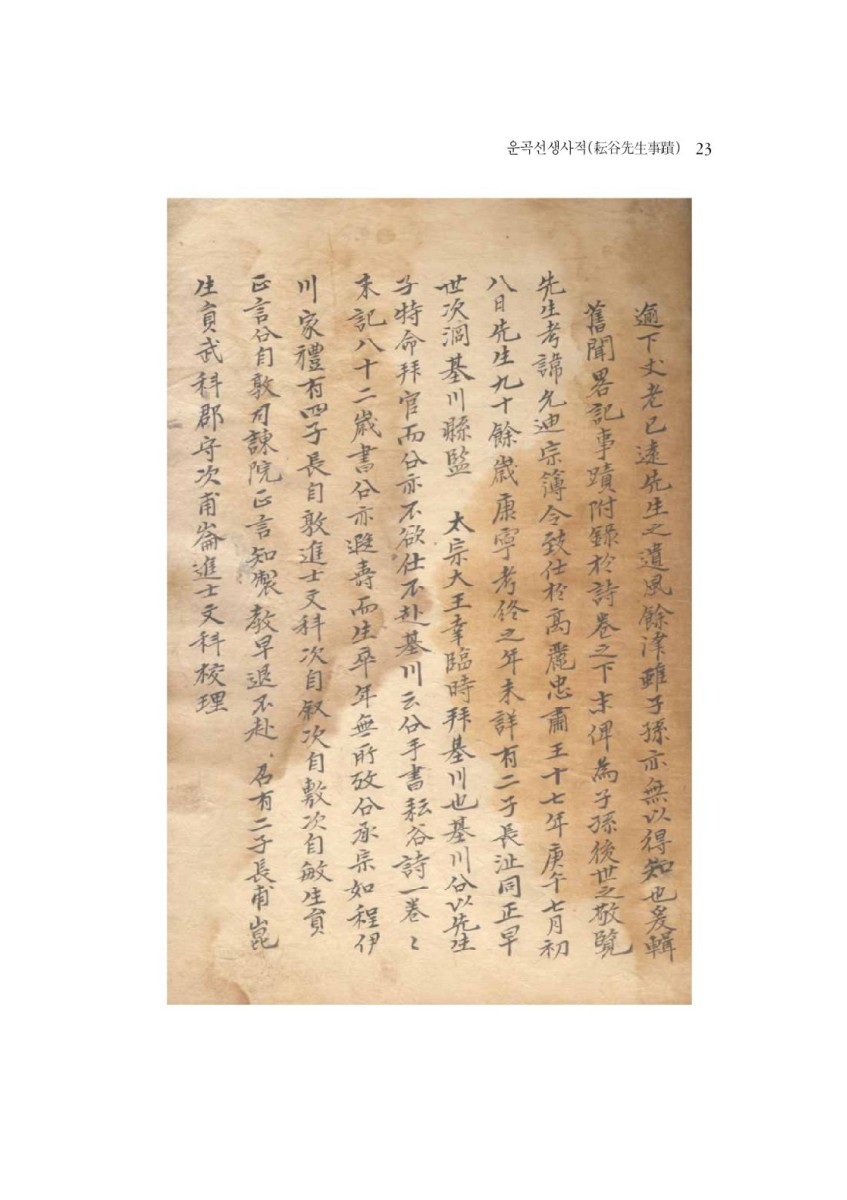 운곡선생사적(耘谷先生事蹟) 23
遁下丈老已遠先生之遺風餘津雖子孫亦無以得知也爰輯
舊聞畧記事蹟附錄於詩卷之下末俾爲子孫後世之敬覽
先生考諱允迪宗簿令致仕於高麗忠肅王十七年庚午七月初
八日先生九十餘歲康寧考終之年未詳有二子長沚同正早
世次泂基川縣監 太宗大王幸臨時拜基川也基川公以先生
子特命拜官而公亦不欲仕不赴基川云公手書耘谷詩一卷〻
末記八十二歲書公亦遐壽而生卒年無所攷公承宗如程伊
川家禮有四子長自敦進士文科次自叙次自敷次自敏生員
正言公自敦司諫院正言知製敎早退不赴 有二子長甫崑
生員武科郡守次甫崙進士文科校理